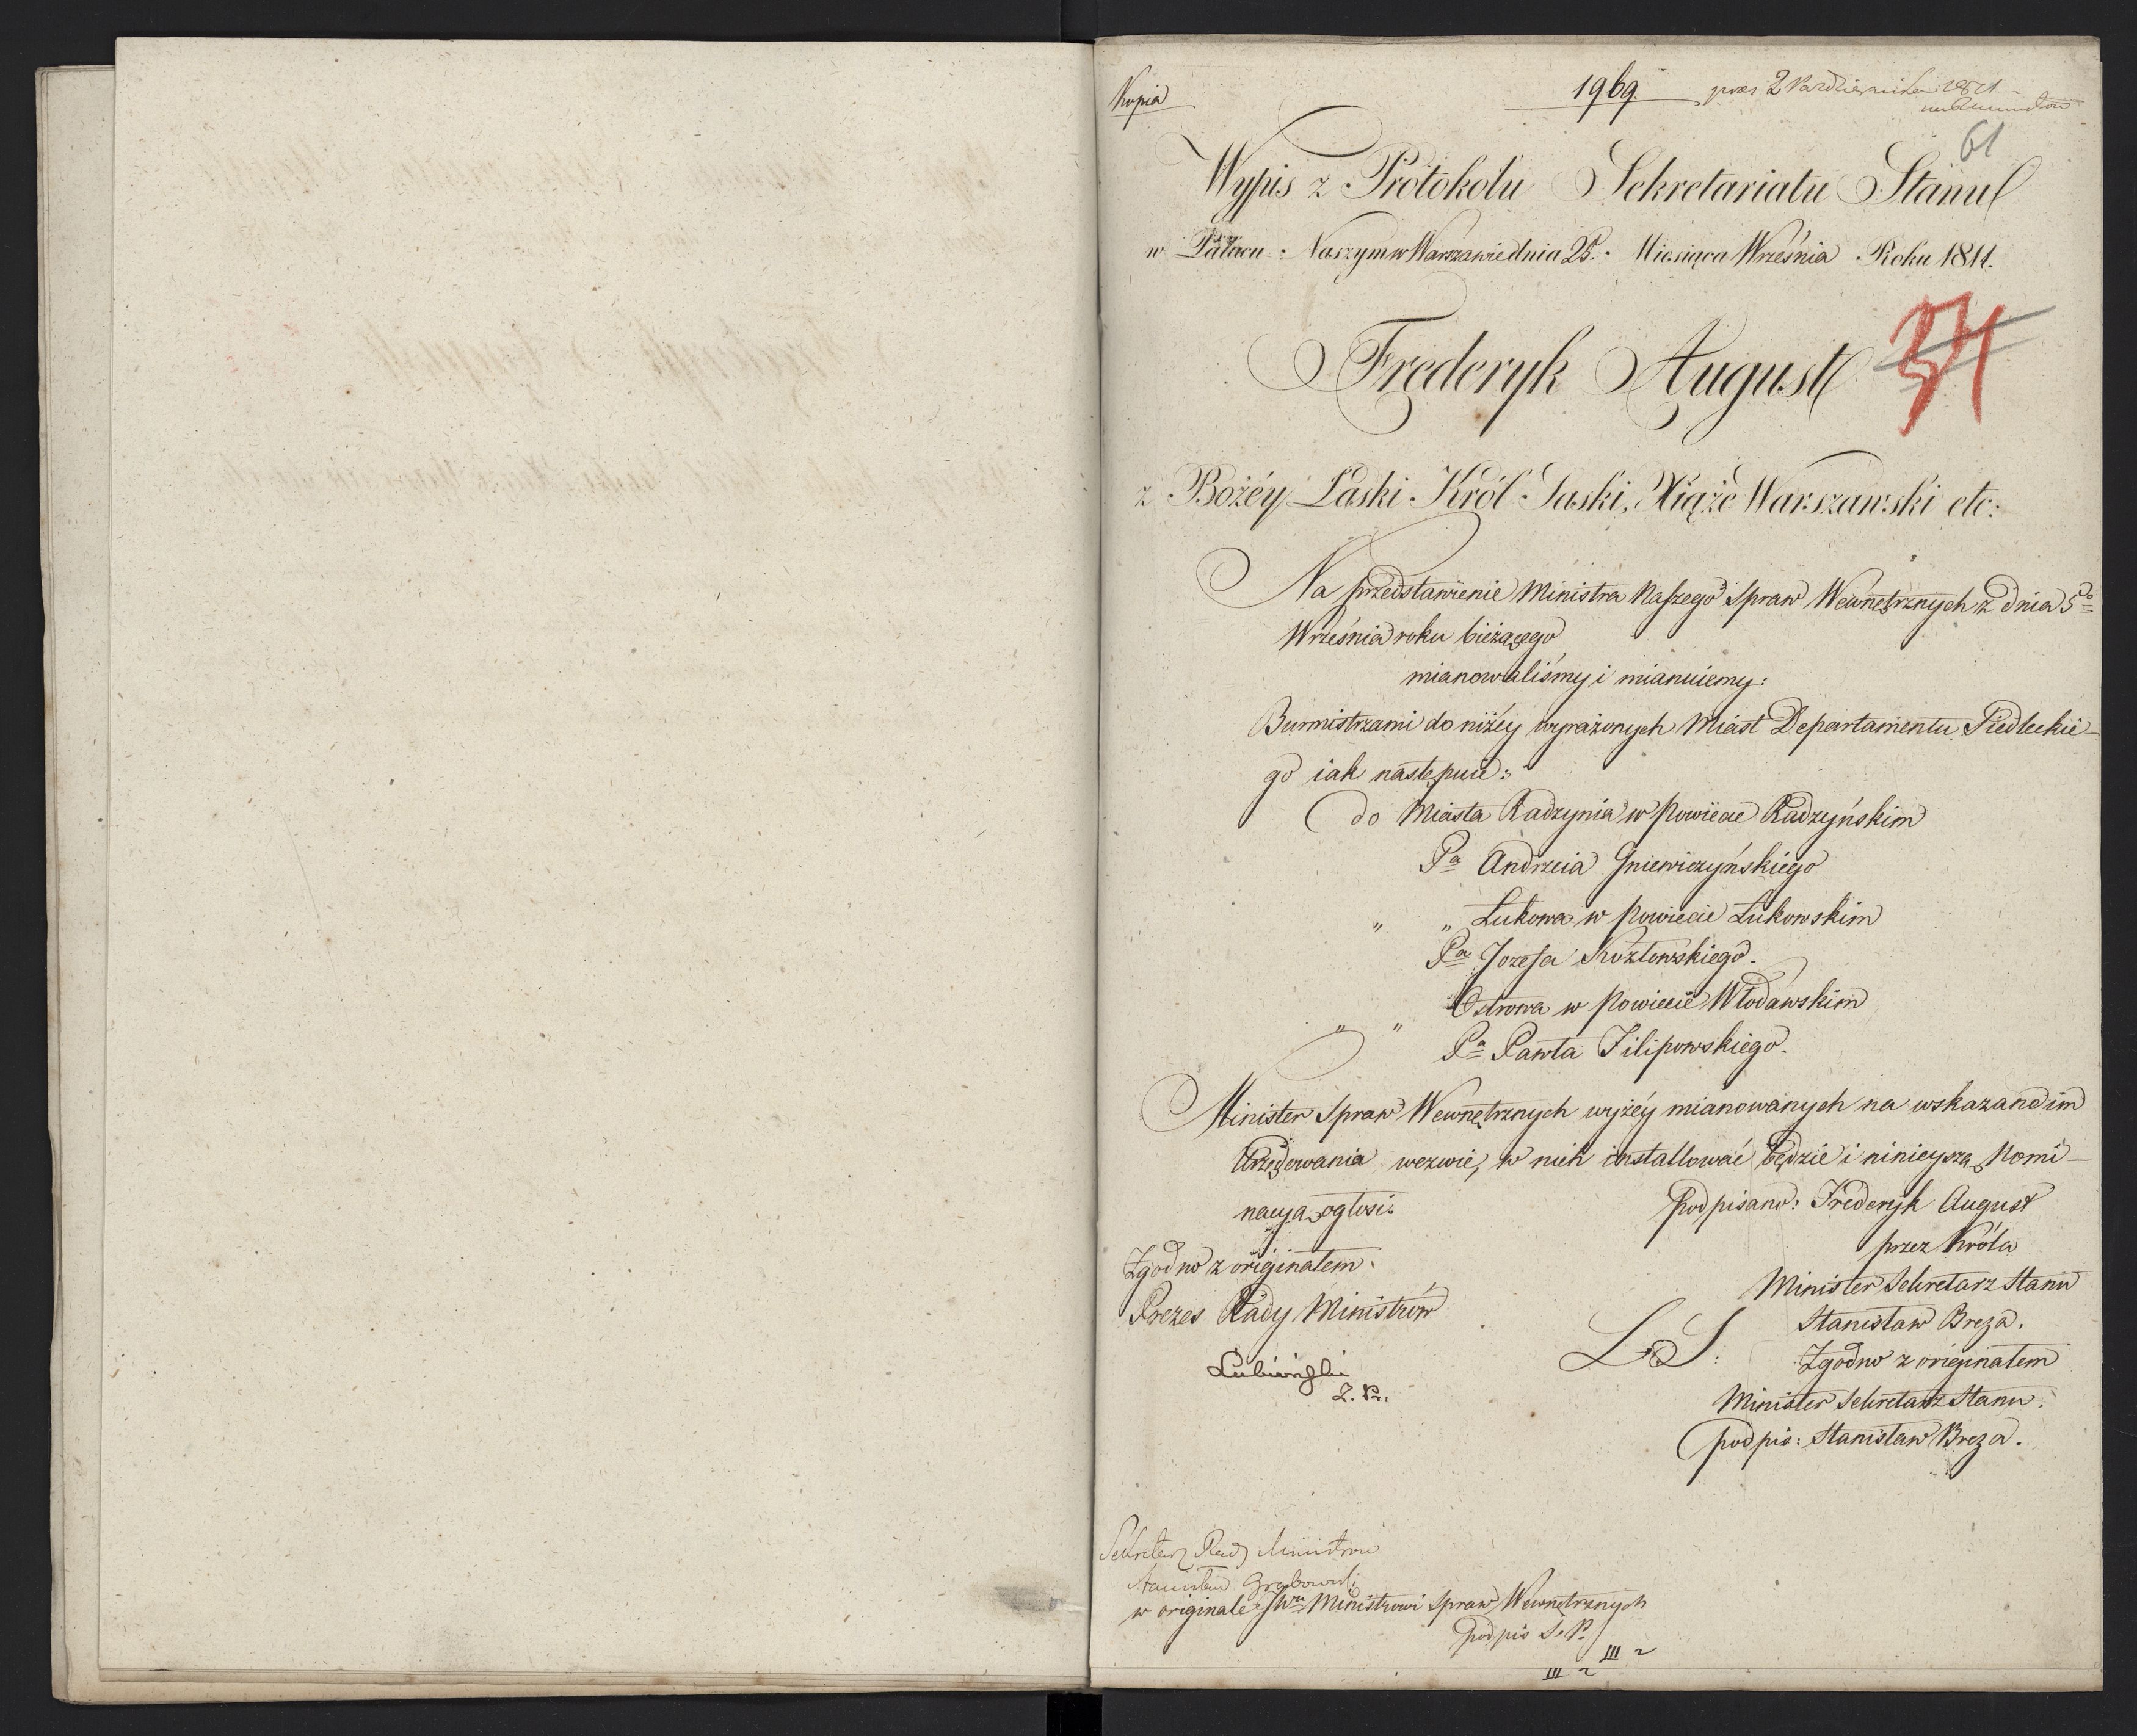 Kopia
1969 prez 2 Października 1811
61
Wypis z Protokołu Sekretariatu Stanu
w Pałacu Naszym w Warszawie dnia 25. Miesiąca Września Roku 1811.
Frederyk August
z Bożéy Łaski Król Saski, Xiąże Warszawski etc:
Na przedstawienie Ministra Naszego Spraw Wewnętrznych z dnia 5go
Września roku bieżącego
mianowaliśmy i mianuiemy:
Burmistrzami do niżéy wyrażonych Miast Departamentu Siedleckie-
go iak następuie:
do Miasta Radzynia w Powiecie Radzyńskim
Pa Andrzeia Gniewiczyńskiego
" " Łukowa w Powiecie Łukowskim
Pa Jozefa Kozłowskiego.
" " Ostrowa w Powiecie Włodawskim
Pa Pawła Filipowskiego.
Minister Spraw Wewnętrznych wyżéy mianowanych na wskazane im
Urzędowania wezwie, w nich installować będzie i ninieyszą Nomi-
nacyą ogłosi.
Podpisano: Frederyk August
przez Króla
Minister Sekretarz Stanu
Stanisław Breza.
L. S.
Zgodno z originałem
Minister Sekretarz Stanu.
podpis: Stanisław Breza.
Zgodno z originałem.
Prezes Rady Ministrów
Łubieński
Z. Pr.
Sekretarz Rady Ministrów
Stanisław Grabowski
w originale JWu Ministrowi Spraw Wewnętrznych
podpis
III 2
III 2